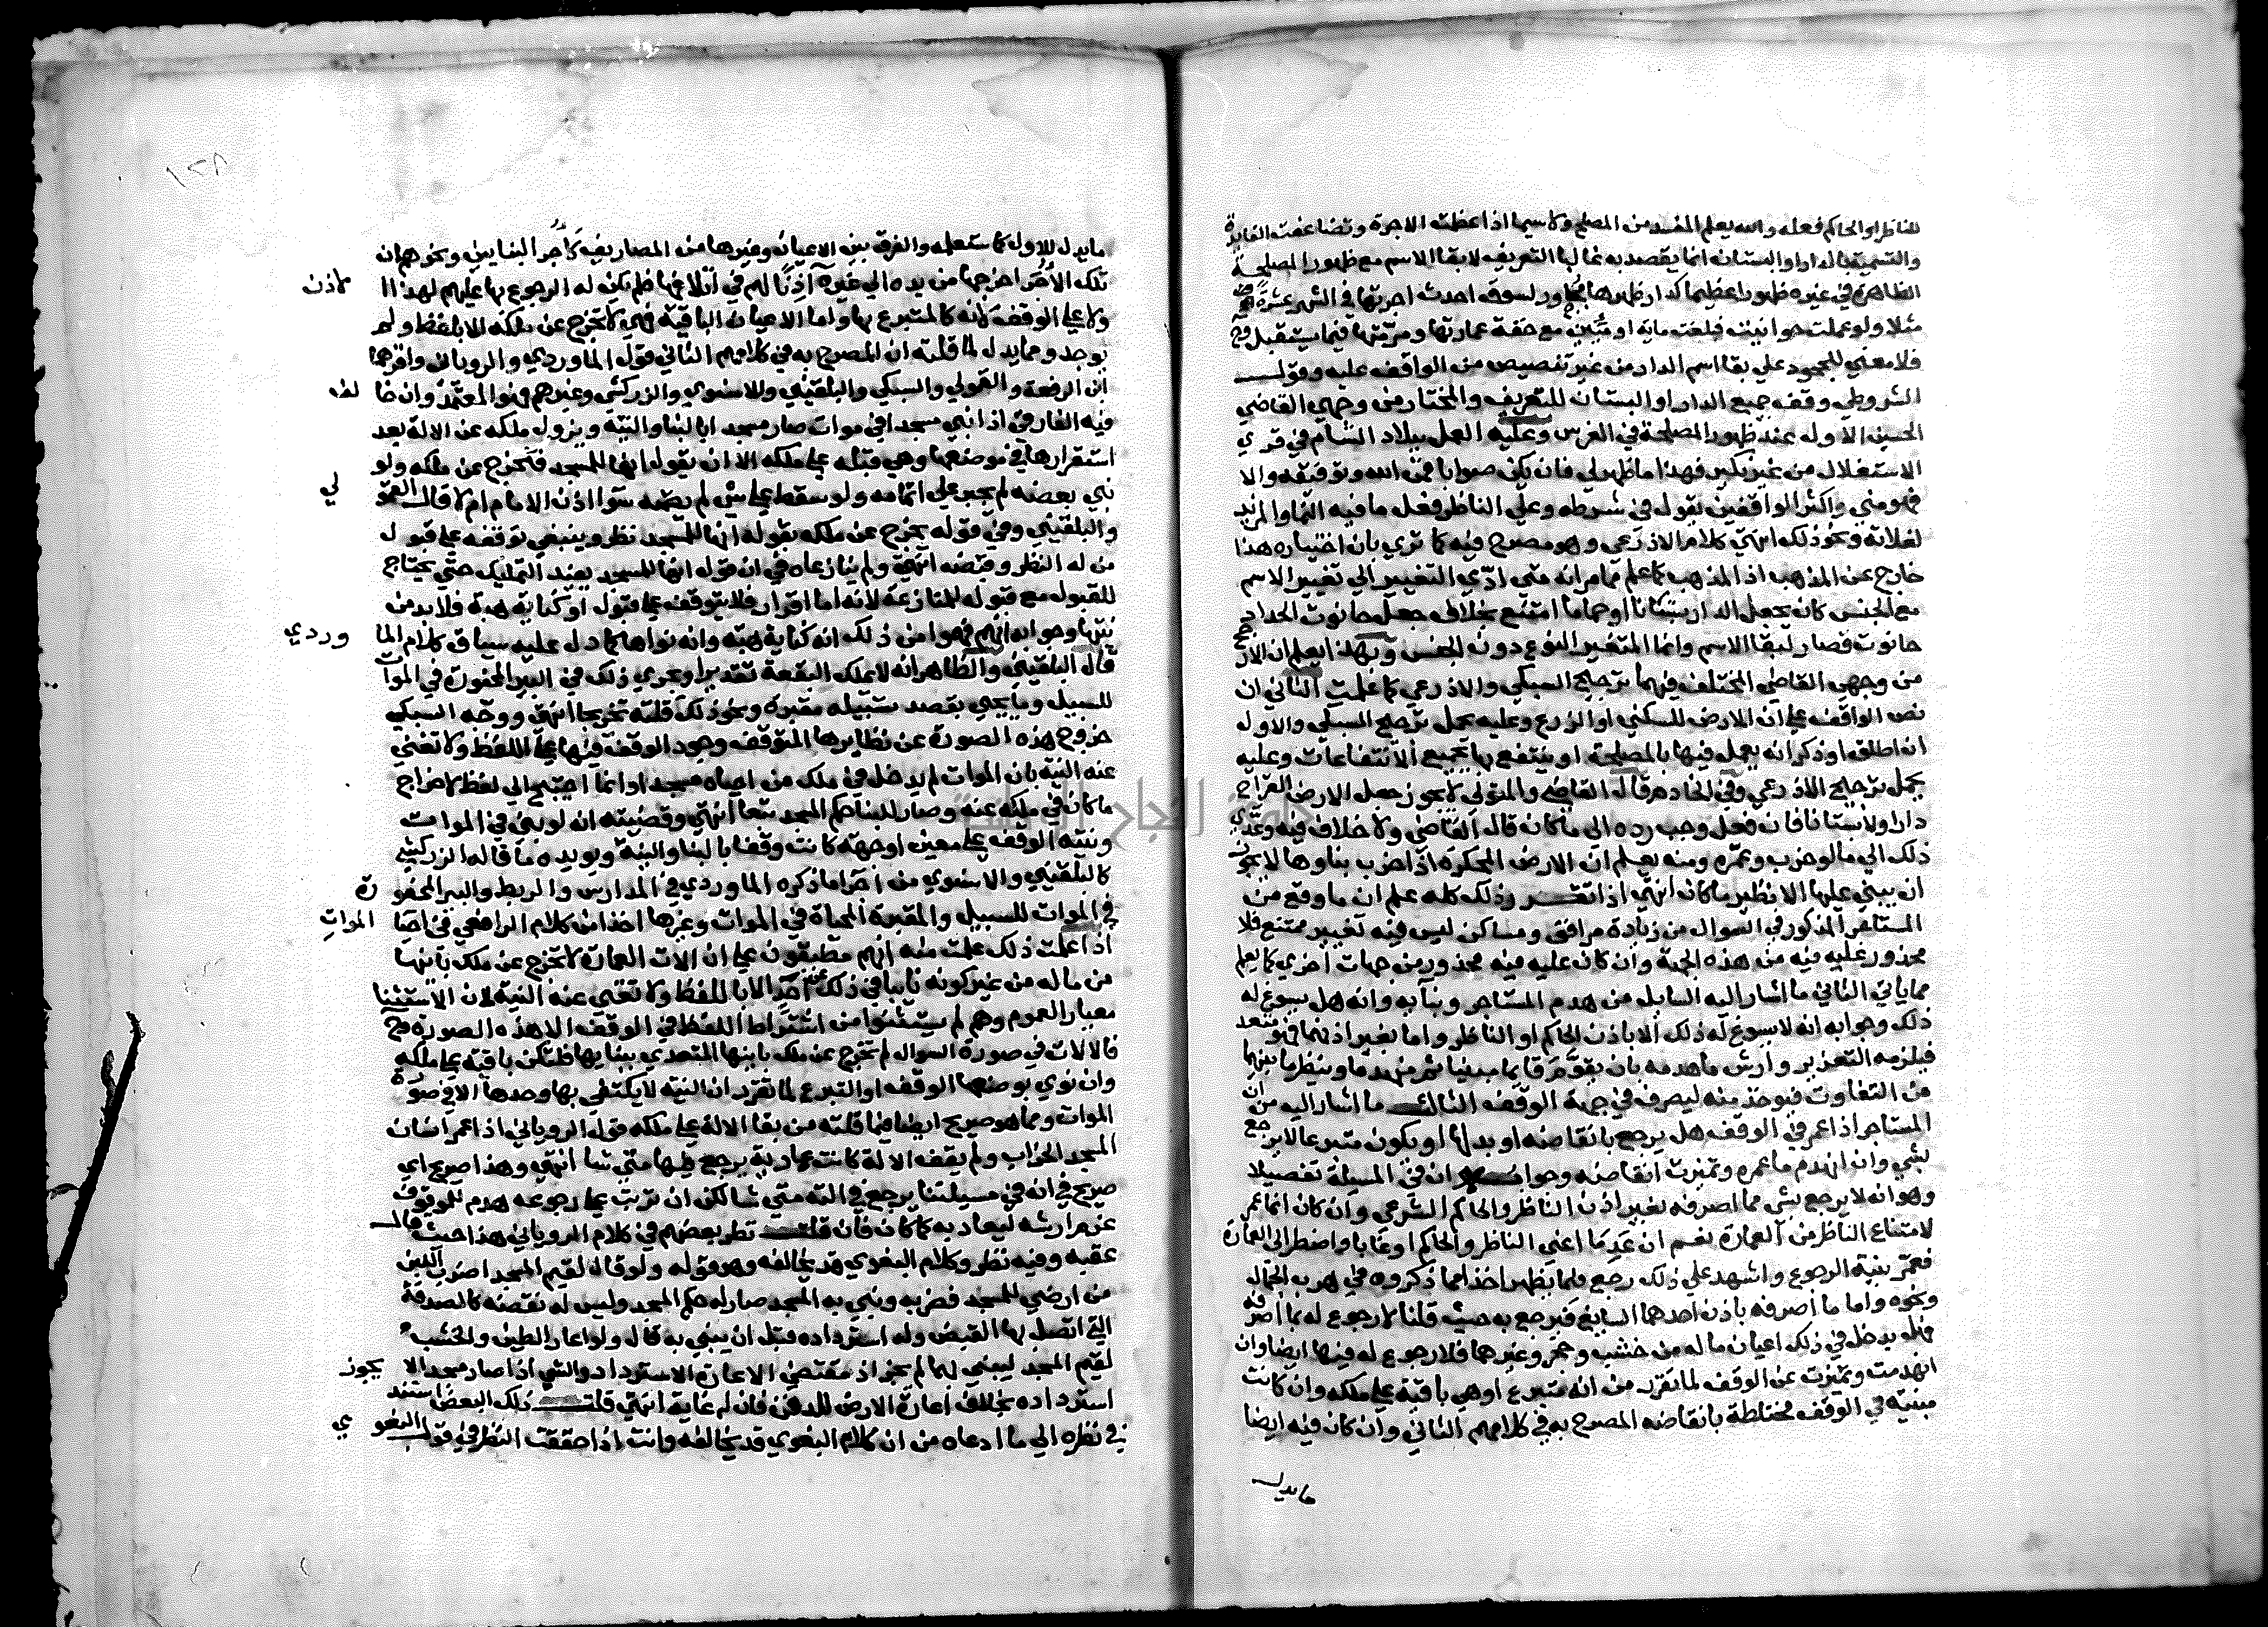 للناظر او الحاكم فعله والله يعلم المفسد من المصلح ولا سيما اذا عظمت الاجرة وتضاعفت الفايدة
والتسمية بالدار او البستان انما يقصد به غالبا التعريف لا بقا الاسم مع ظهور المصلحة
الظاهرة في غيره ظهورا عظيما كدار ظهرها مجاور لسوق احدث اجرتها في الشهر عشرة
مثلا ولو عملت حوانيت فبلغت ماية او مئين مع خفة عمارتها ومرمتها فيما يستقبل فح
فلا معني للجمود علي بقا اسم الدار من غير تنصيص من الواقف عليه وقول
الشروطي وقف جميع الدار او البستان للتعريف والمختار من وجهي القاضي
الحسين الاول عند ظهور المصلحة في الغرس وعليه العمل ببلاد الشام في قري
الاستغلال من غير نكير فهذا ما ظهر لي فان يكن صوابا فمن الله وتوفيقه والا
فهو مني واكثر الواقفين يقول في شرطه وعلي الناظر فعل ما فيه النما والمزيد
لغلاته ونحو ذلك انتهي كلام الاذرعي وهو مصرح فيه كما تري بان اختياره هذا
خارج عن المذهب اذ المذهب كما علم مما مر انه متي ادي التغيير الي تغيير الاسم
مع الجنس كان يجعل الدار بستانا او حماما امتنع بخلاف جعل حانوت الحداد
حانوت قصار لبقا الاسم وانما المتغير النوع دون الجنس وبهذا يعلم ان الار
من وجهي القاضي المختلف فيهما ترجيح السبكي والاذرعي كما علمت الثاني ان
نص الواقف علي ان الارض للسكني او الزرع وعليه يحمل ترجيح السبكي والاول
ان اطلق او ذكر انه يعمل فيها بالمصلحة او ينتفع بها بجميع الانتفاعات وعليه
يحمل ترجيح الاذرعي وفي الخادم قال القاضي والمتولي لا يجوز جعل الارض القراح
دارا ولا بستانا فان فعل وجب رده الي ما كان قال القاضي ولا خلاف فيه وعدي
ذلك الي ما لو خرب وعمره ومنه يعلم ان الارض المحكرة اذا خرب بناوها لا يجوز
ان يبني عليها الا نظير ما كان انتهي اذا تقرر ذلك كله علم ان ما وقع من
المستاجر المذكور في السوال من زيادة مرافق ومساكن ليس فيه تغيير ممتنع فلا
محذور عليه فيه من هذه الجهة وان كان عليه فيه محذور من جهات اخري كما يعلم
مما ياتي الثاني ما اشار اليه السايل من هدم المستاجر وبنآيه وانه هل يسوغ له
ذلك وجوابه انه لا يسوغ له ذلك الا باذن الحاكم او الناظر واما بغير اذنهما فهو متعد
فيلزمه التعزير وارش ما هدمه بان يقوم قايما مبنيا ثم مهدوما وينظر ما بينهما
من التفاوت فيوخذ منه ليصرف في جهة الوقف الثالث ما اشار اليه من ان
المستاجر اذا عمر في الوقف هل يرجع بانقاضه او بدلها او يكون متبرعا لا يرجع
بشي وان انهدم ما عمره وتميزت انقاضه وجوابه ان في المسيلة تفصيلا
وهو انه لا يرجع بشي مما اصرفه بغير اذن الناظر والحاكم الشرعي وان كان انما عمر
لامتناع الناظر من العمارة نعم ان عدما اعني الناظر والحاكم او غابا واضطر الي العمارة
فعمر بنية الرجوع واشهد علي ذلك رجع فيما يظهر اخذا مما ذكروه في هرب الجمال
ونحوه واما ما اصرفه باذن احدهما السايغ فيرجع به حيث قلنا لا رجوع له بما اصرفه
فلا يدخل في ذلك اعيان ماله من خشب وحجر وغيرهما فلا رجوع له فيها ايضا وان
انهدمت وتميزت عن الوقف لما تقرر من انه متبرع او هي باقية علي ملكه وان كانت
مبنية في الوقف مختلطة بانقاضه المصرح به في كلامهم الثاني وان كان فيه ايضا
ما يدل
١٢٨
ما يدل للاول كما ستعلمه والفرق بين الاعيان وغيرها من المصاريف كاجر البنايين ونحوهم ان
تلك الاجر اخرجها من يده الي غيره آذنا لهم في اتلافها فلم يكن له الرجوع بها عليهم لهذا الاذن
ولا علي الوقف لانه كالمتبرع بها واما الاعيان الباقية فهي لا تخرج عن ملكه الا بلفظ ولم
يوجد ومما يدل لما قلته ان المصرح به في كلامهم الثاني قول الماوردي والروياني واقرهما
ابن الرفعة والقمولي والسبكي والبلقيني والاسنوي والزركشي وغيرهم فهو المعتمد وان خالف
فيه الفارقي اذا بني مسجدا في موات صار مسجدا بالبنا والنية ويزول ملكه عن الالة بعد
استقرارها في موضعها وهي قبله علي ملكه الا ان يقول انها للمسجد فتخرج عن ملكه ولو
بني بعضه لم يجبر علي اتمامه ولو سقط علي شي لم يضمنه سوا اذن الامام ام لا قال القمولي
والبلقيني وفي قوله يخرج عن ملكه بقوله انها للمسجد نظر وينبغي توقفه علي قبول
من له النظر وقبضه انتهي ولم ينازعاه في ان قوله انها للمسجد يفيد التمليك حتي يحتاج
للقبول مع قبوله للمنازعة لانه اما اقرار فلا يتوقف علي قبول او كناية هبة فلا بد من
نيتها وجوابه انهم فهموا من ذلك انه كناية هبة وانه نواها كما دل عليه سياق كلام الماوردي
قال البلقيني والظاهر انه لا يملك البقعة تقديرا ويجري ذلك في البير المحفورة في الموات
للسبيل وما يحيي بقصد تسبيله مقبرة ونحو ذلك قلته تخريجا انتهي ووجه السبكي
خروج هذه الصورة عن نظايرها المتوقف وجود الوقف فيها علي اللفظ ولا تغني
عنه النية بان الموات لم يدخل في ملك من احياه مسجدا وانما احتيج الي لفظ لاخراج
ما كان في ملكه عنه وصار للبنا حكم المسجد تبعا انتهي وقضيته انه لو بني في الموات
ونيته الوقف علي معين او جهة كانت وقفا بالبنا والنية ويويده ما قاله الزركشي
كالبلقيني والاسنوي من اجراء ما ذكره الماوردي في المدارس والربط والبير المحفورة
في الموات للسبيل والمقبرة المحياة في الموات وغيرها اخذا من كلام الرافعي في احيا الموات
اذا علمت ذلك علمت منه انهم مطبقون علي ان الات العمارة لا تخرج عن ملك بانيها
من ماله من غير كونه نايبا في ذلك عن احد الا باللفظ ولا تغني عنه النية لان الاستثنا
معيار العموم وهم لم يستثنوا من اشتراط اللفظ في الوقف الا هذه الصورة فح
فالالات في صورة السوال لم تخرج عن ملك بانيها المتعدي ببنايها فلتكن باقية علي ملكه
وان نوي بوضعها الوقف او التبرع لما تقرر ان النية لا يكتفي بها وحدها الا في صورة
الموات ومما هو صريح ايضا فيما قلته من بقا الالة علي ملكه قول الروياني اذا عمر انسان
المسجد الخراب ولم يقف الالة كانت عارية يرجع فيها متي شا انتهي وهذا صريح اي
صريح في انه في مسيلتنا يرجع في آلته متي شا لكن ان ترتب علي رجوعه هدم للوقف
غرم ارشه ليعاد به كما كان فان قلت نظر بعضهم في كلام الروياني هذا حيث قال
عقبه وفيه نظر وكلام البغوي قد يخالفه وهو قوله ولو قال لقيم المسجد اضرب اللبن
من ارضي للمسجد فضربه وبني به المسجد صار له حكم المسجد وليس له نقضه كالصدقة
التي اتصل بها القبض وله استرداده قبل ان يبني به قال ولو اعار الطين والخشب
لقيم المسجد ليبني لهما لم يجز اذ مقتضي الاعارة الاسترداد والشي اذا صار مسجدا لا يجوز
استرداده بخلاف اعارة الارض للدفن فان له غاية انتهي قلت ذلك البعض استند
في نظره الي ما ادعاه من ان كلام البغوي قد يخالفه وانت اذا حققت النظر في قول البغوي